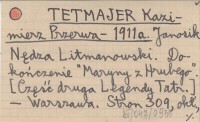 TETMAJER Kazi-
mierz Przerwa- 1911a. Janosik
Nędza Litmanowski. Do-
kończenie "Maryny z Hrubego".
[Część druga Legendy Tatr.]
— Warszawa. Stron 309, okł,